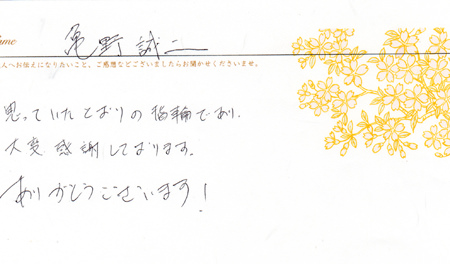 ame 亀野 誠二
人へお伝えになりたいこと、ご感想などございましたらお聞かせくださいませ。
思っていたとおりの指輪であり、
大変感謝しております。
ありがとうございます!